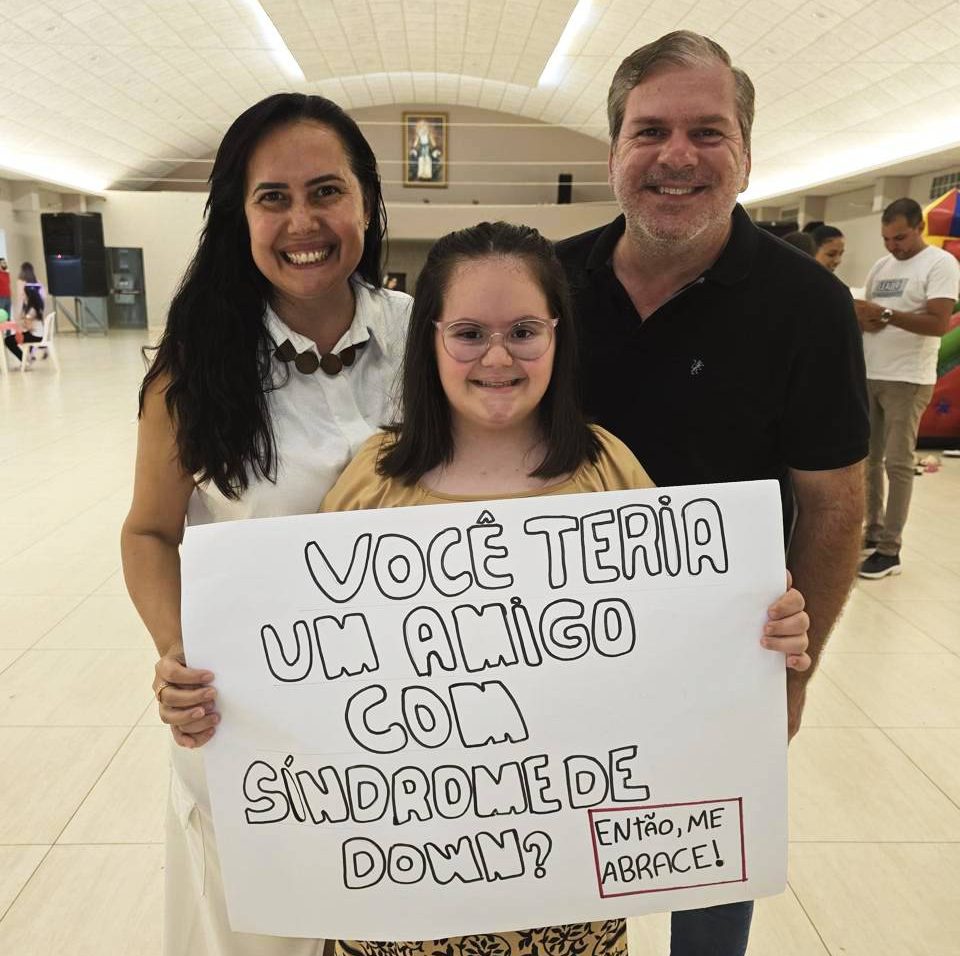 VOCÊ TERiA
UM AMiGO
COM
SÍNDROME DE
DOWN?
ENTÃO, ME
ABRACE!